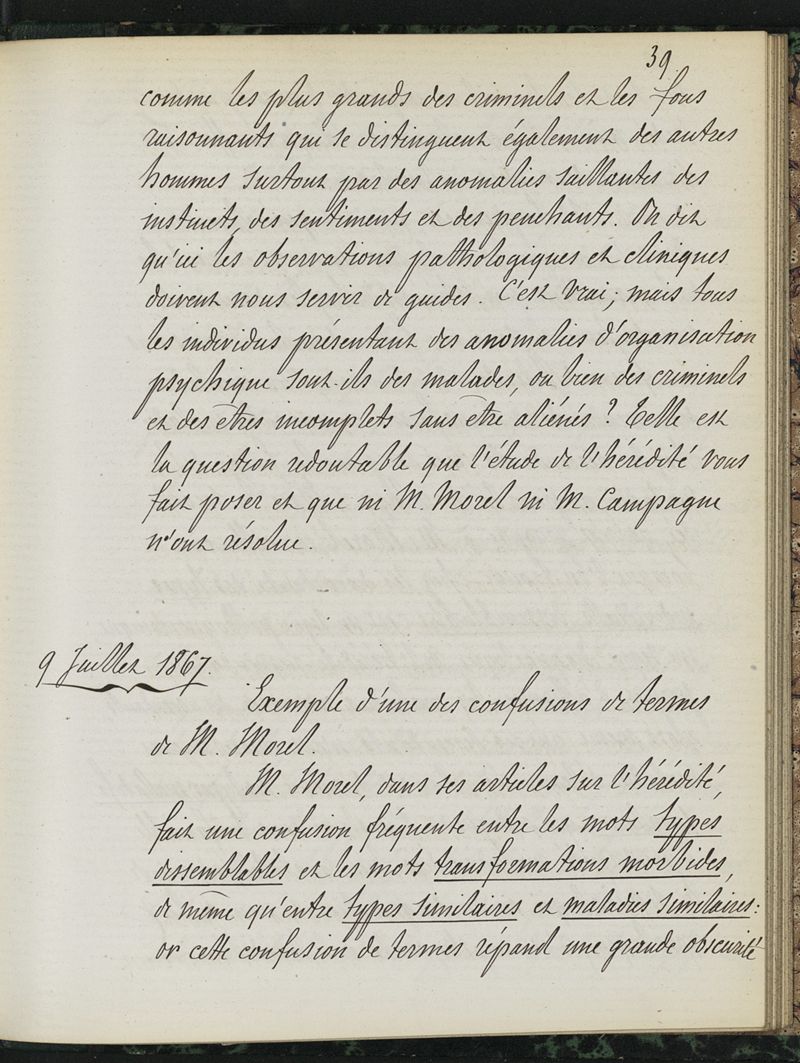 39
comme les plus grands des criminels et les fous
raisonnants qui se distinguent également des autres
hommes surtout par des anomalies saillantes des
instincts, des sentiments et des penchants. On dit
qu'ici les observations pathologiques et cliniques
doivent nous servir de guides. C'est vrai; mais tous
les individus présentant des anomalies d'organisation
psychique sont-ils des malades, ou bien des criminels
et des êtres incomplets sans être aliénés ? Telle est
la question redoutable que l'étude de l'hérédité vous
fait poser et que ni M. Morel ni M. Campagne
n'ont résolue.
9 Juillet 1867.
Exemple d'une des confusions de termes
de M. Morel.
M. Morel, dans ses articles sur l'hérédité,
fait une confusion fréquente entre les mots types
dissemblables et les mots transformations morbides,
de même qu'entre types similaires et maladies similaires:
or cette confusion de termes répand une grande obscurité